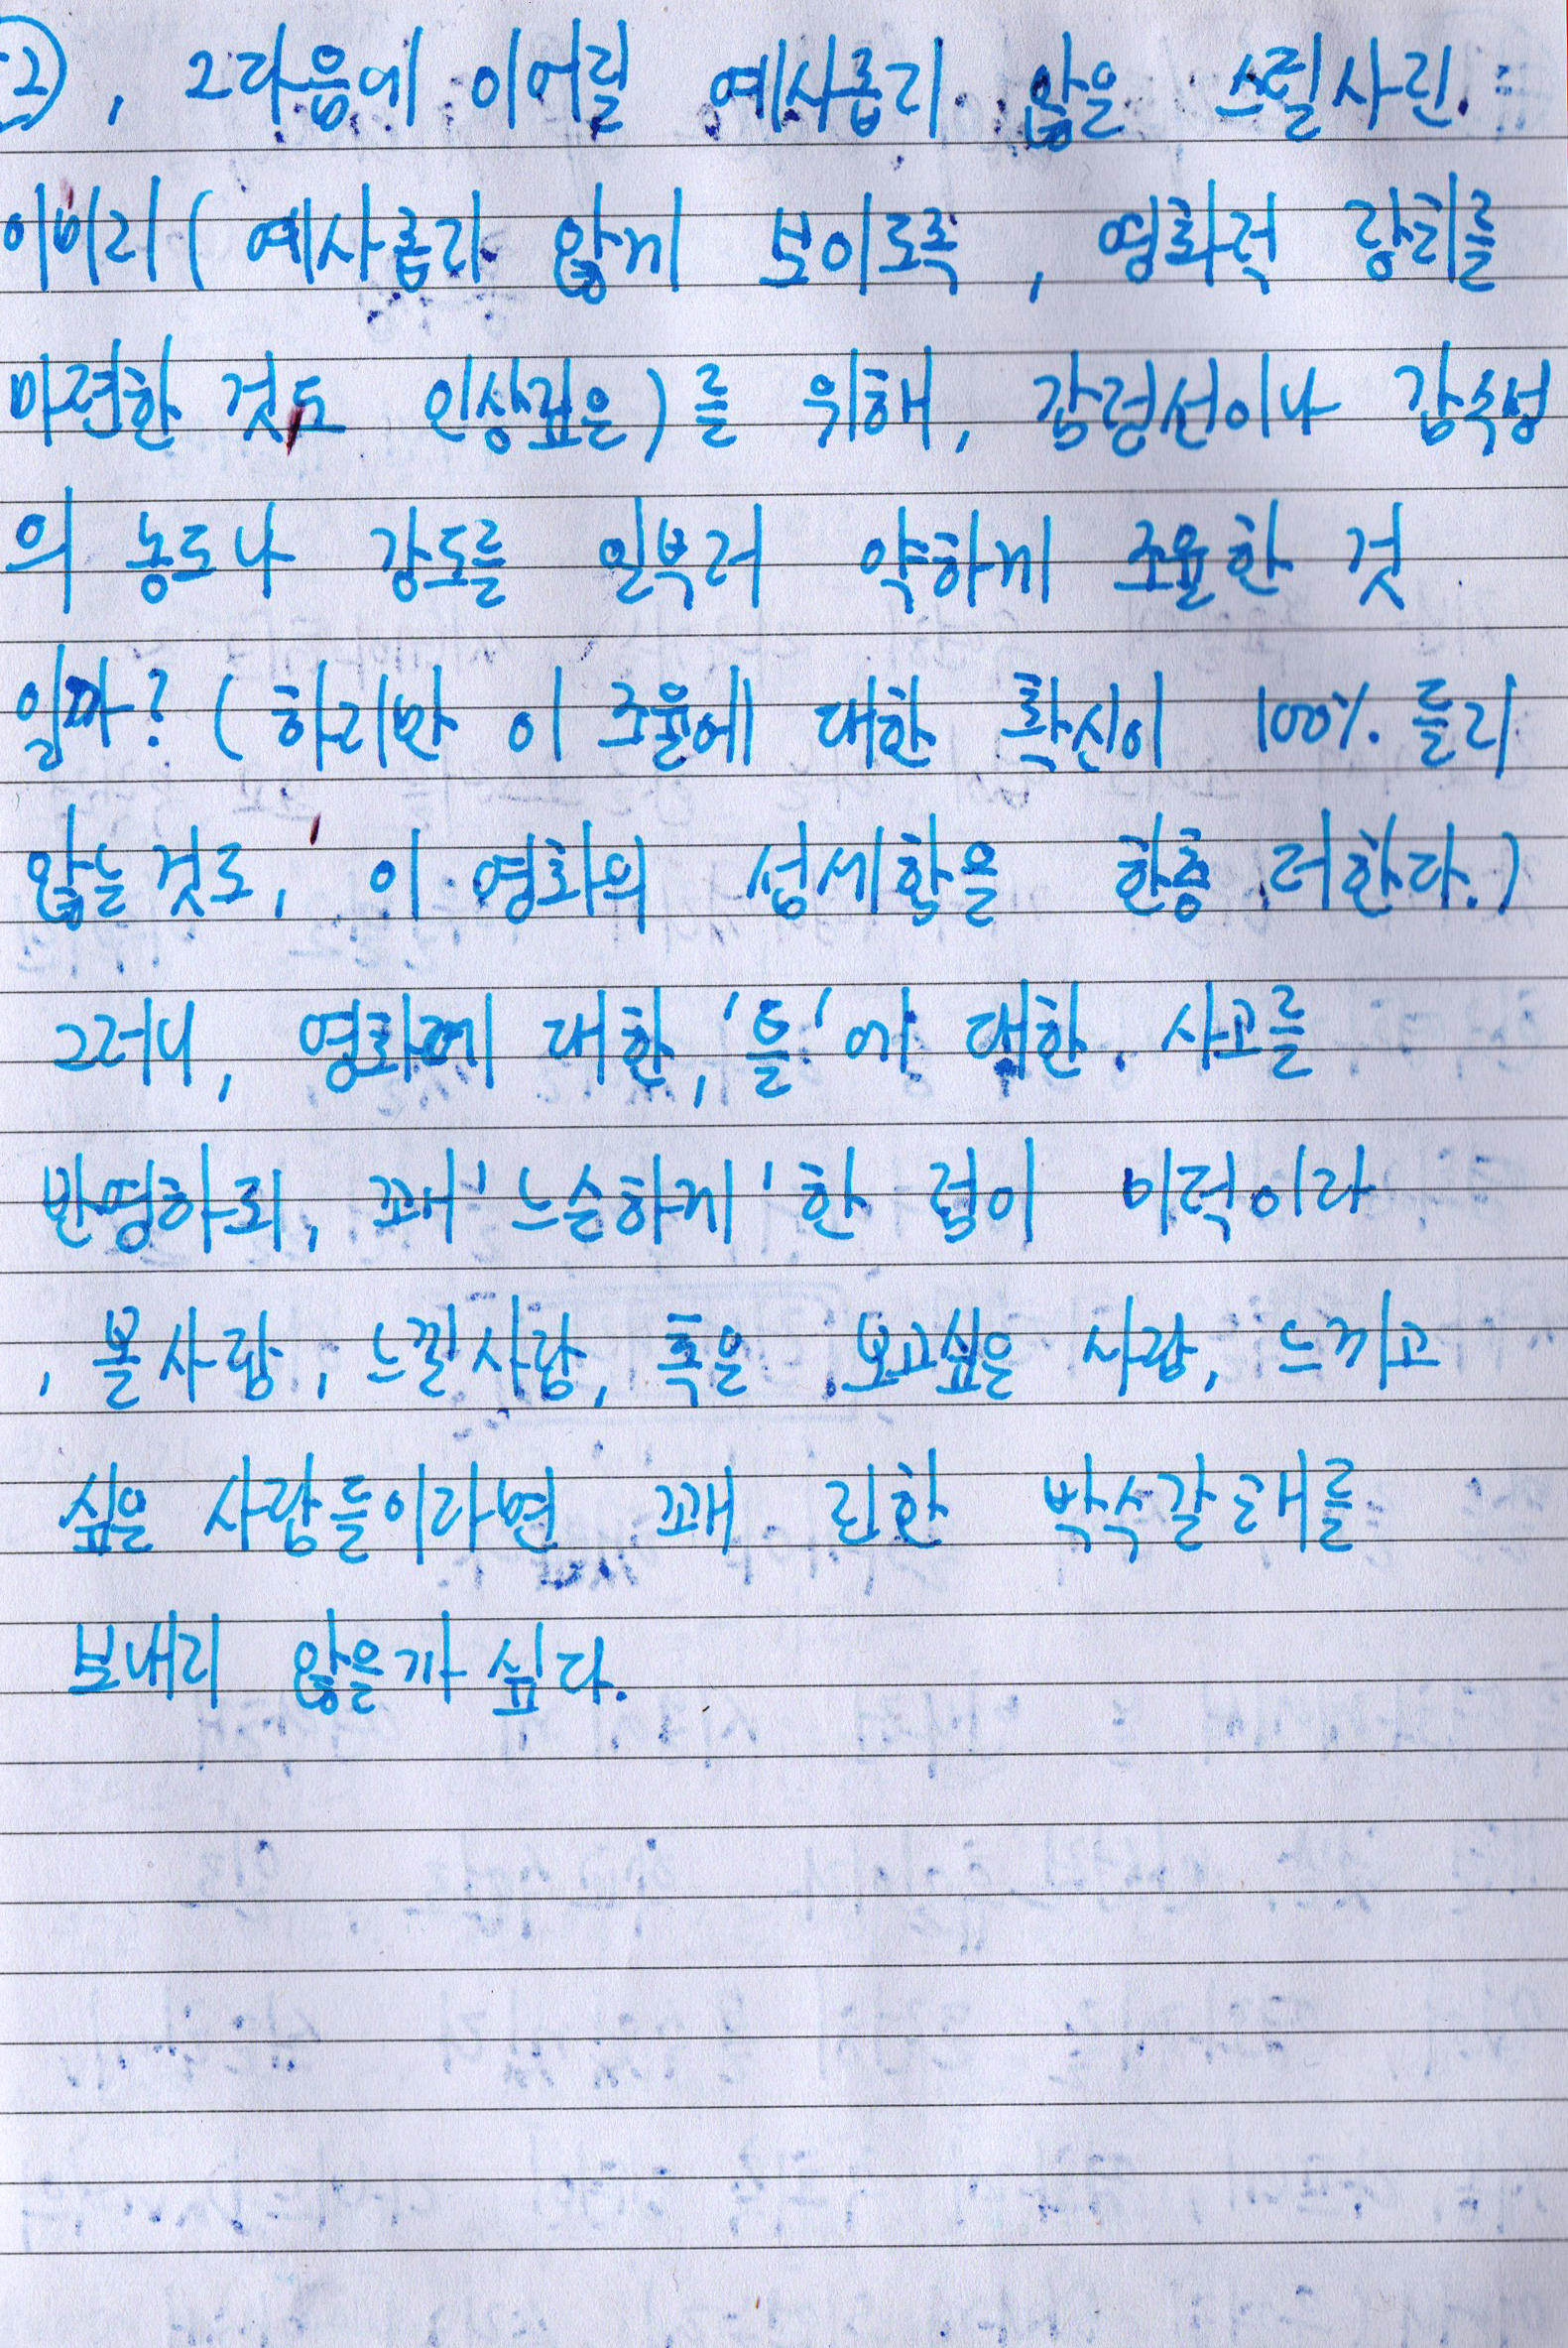 ②, 그다음에 이어질 예사롭지 않은 스틸사진
이미지 (예사롭지 않게 보이도록, 영화적 장치를
마련한 것도 인상깊은)를 위해, 감정선이나 감수성
의 농도나 강도를 일부러 약하게 조율한 것
일까? (하지만 이 조율에 대한 확신이 100% 들지
않는 것도, 이 영화의 섬세함을 한층 더한다.)
그러니, 영화에 대한, '틀'에 대한 사고를
반영하되, 꽤 '느슨하게' 한 점이 미덕이라
, 볼 사람, 느낄 사람, 혹은 보고싶은 사람, 느끼고
싶은 사람들이라면 꽤 진한 박수갈채를
보내지 않을까 싶다.